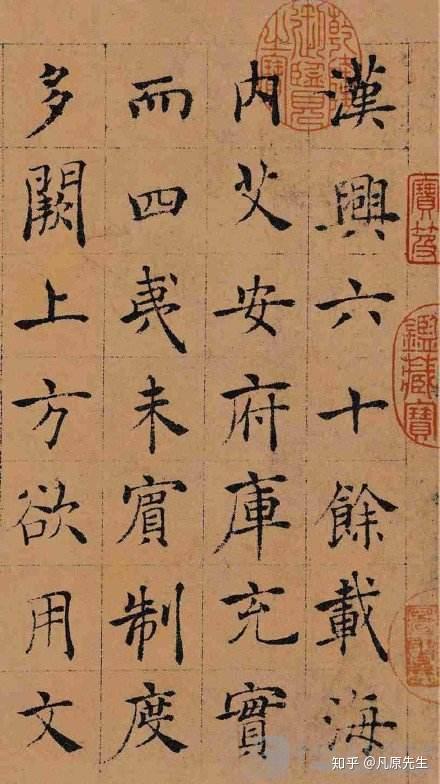 漢興六十餘載海
内艾安府庫充實
而四夷未賓制度
多闕上方欲用文
鑑藏寶
知乎 @凡原先生